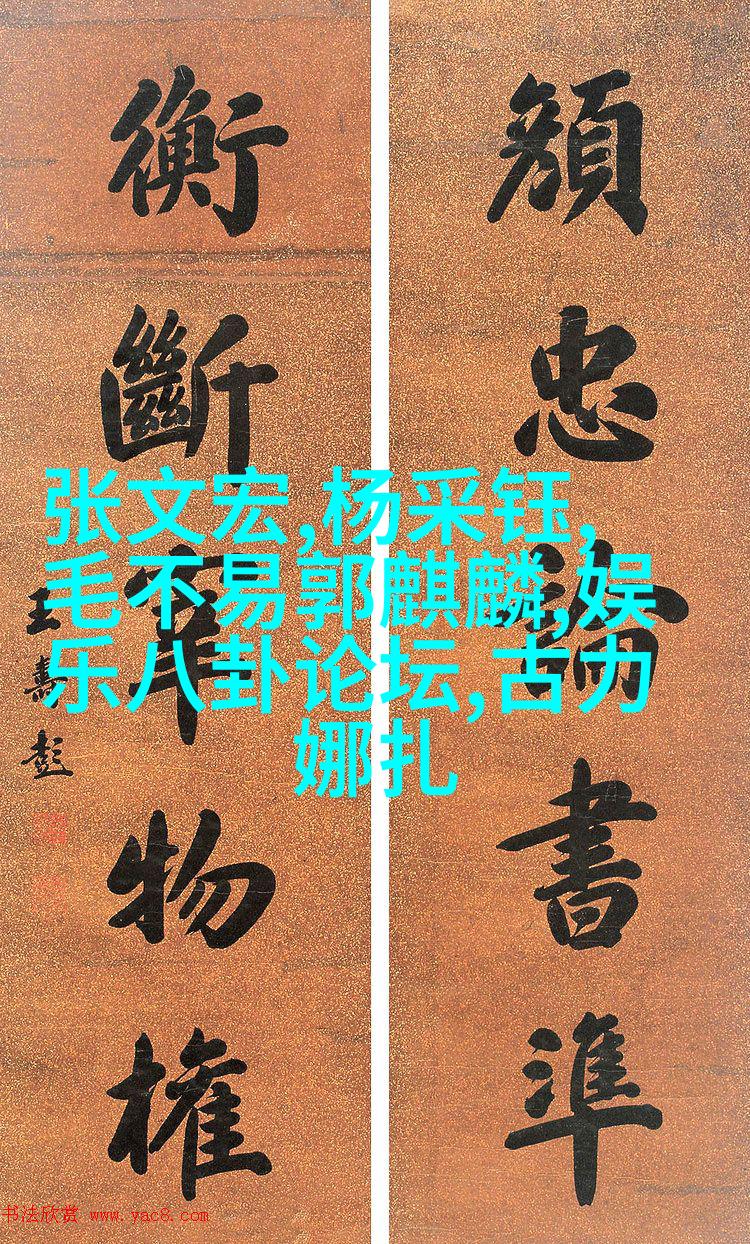 顏忠論書準
衡斷宰物權
王壽彭
张文宏,杨采钰,
毛不易郭麒麟,娱
乐八卦论坛,古力
娜扎
书法欣赏 www.yac8.com